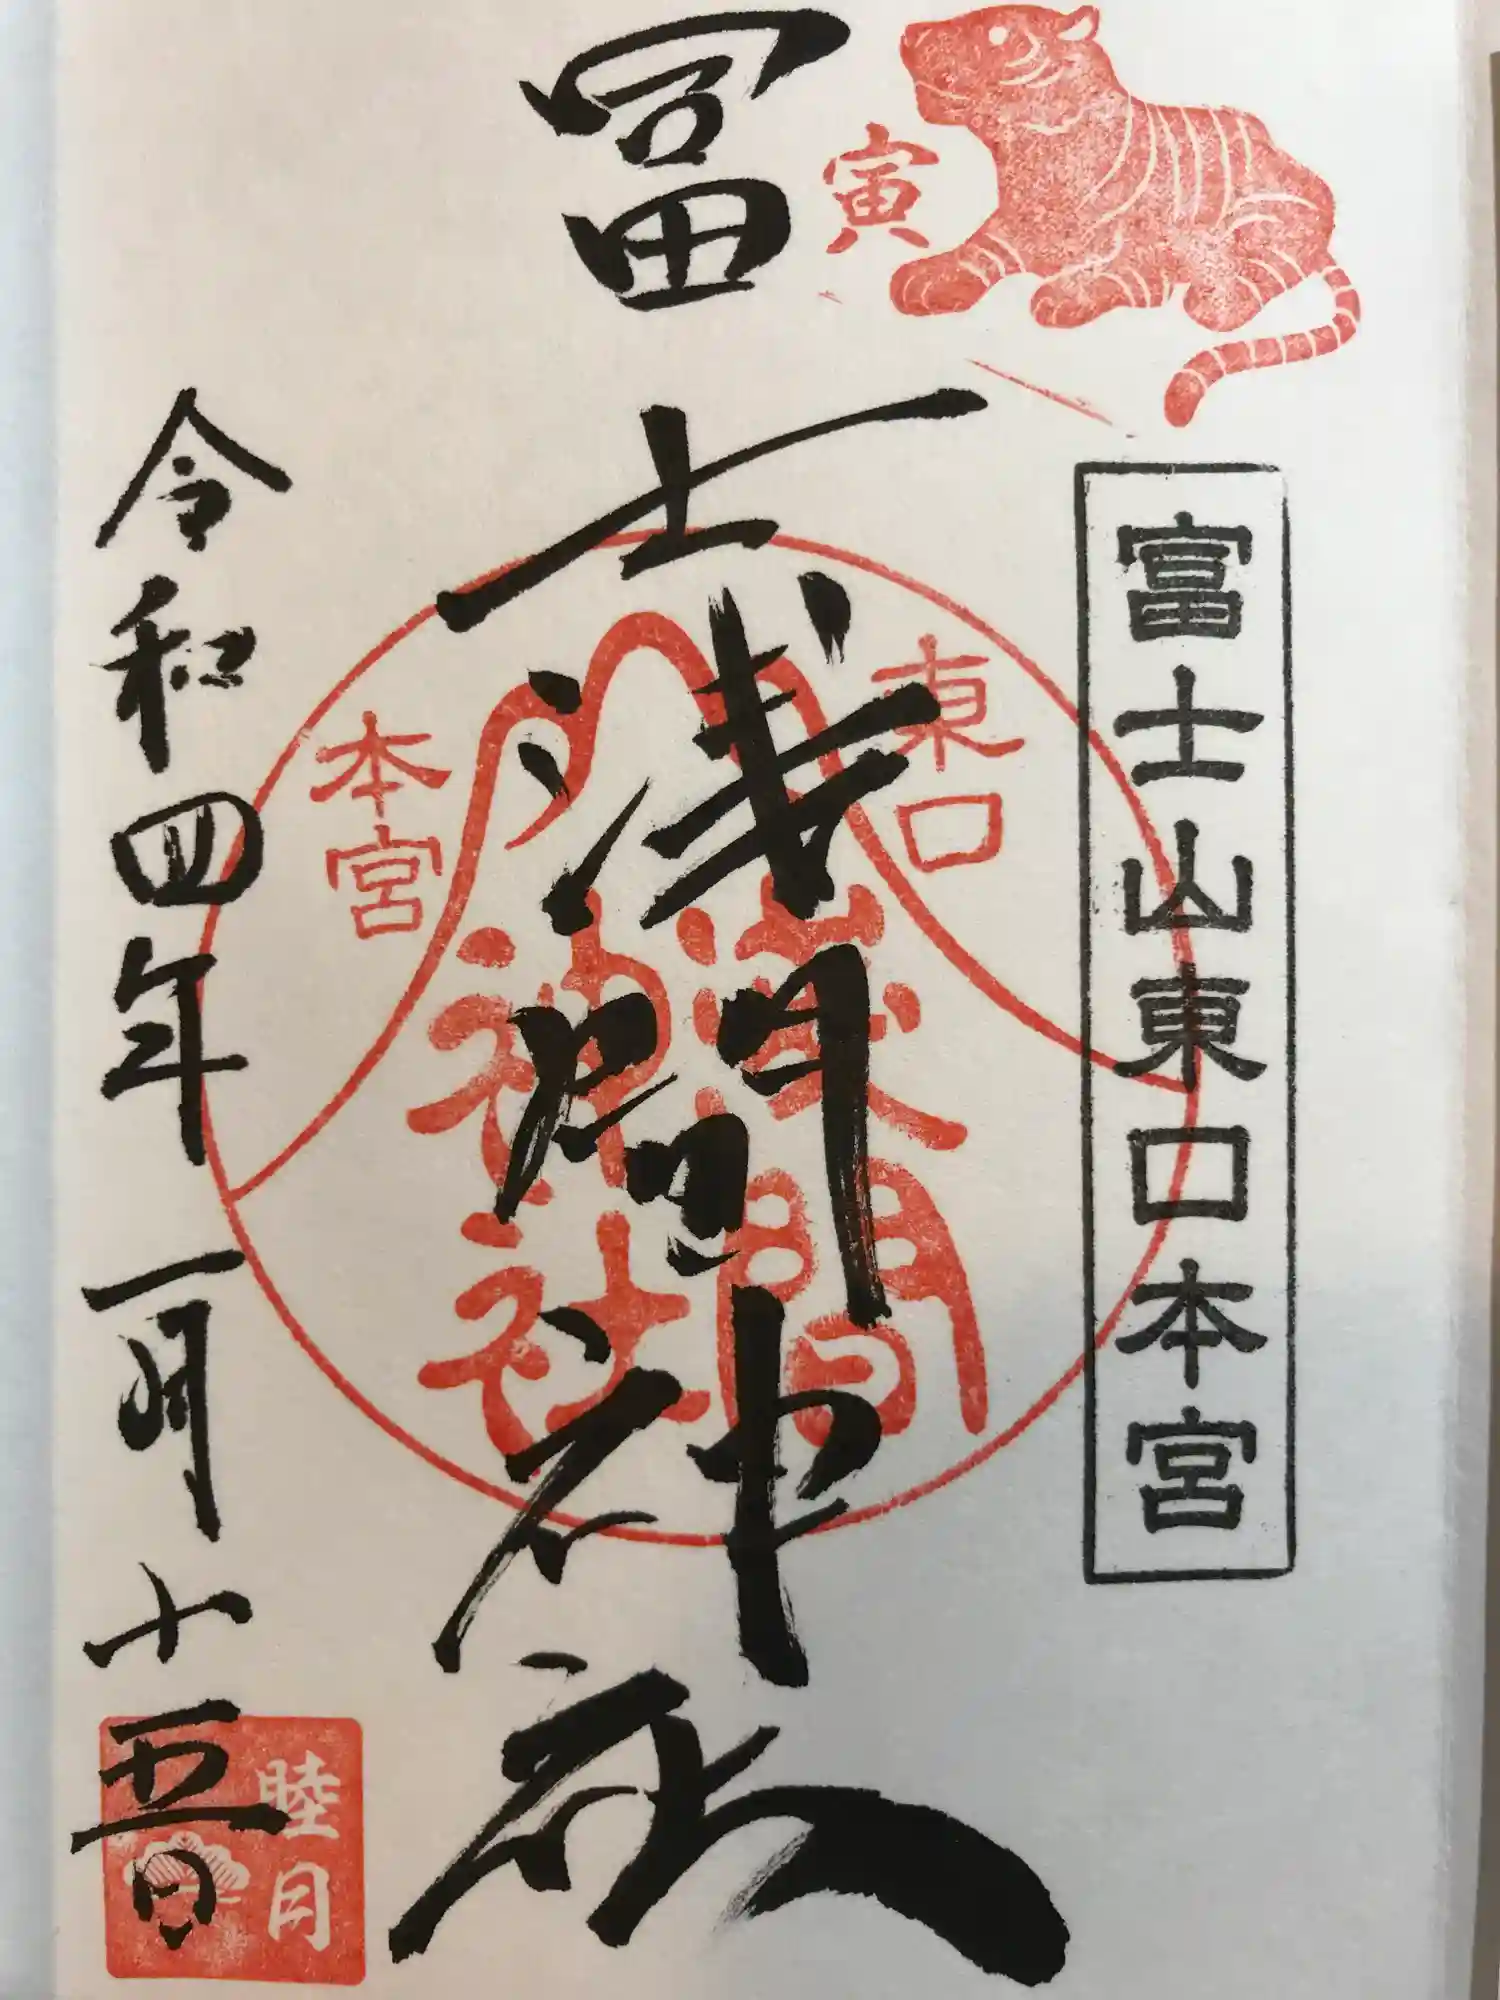 寅
富士山東口本宮
冨士浅間神社
東口
本宮
浅間
神社
令和四年一月十五日
睦月